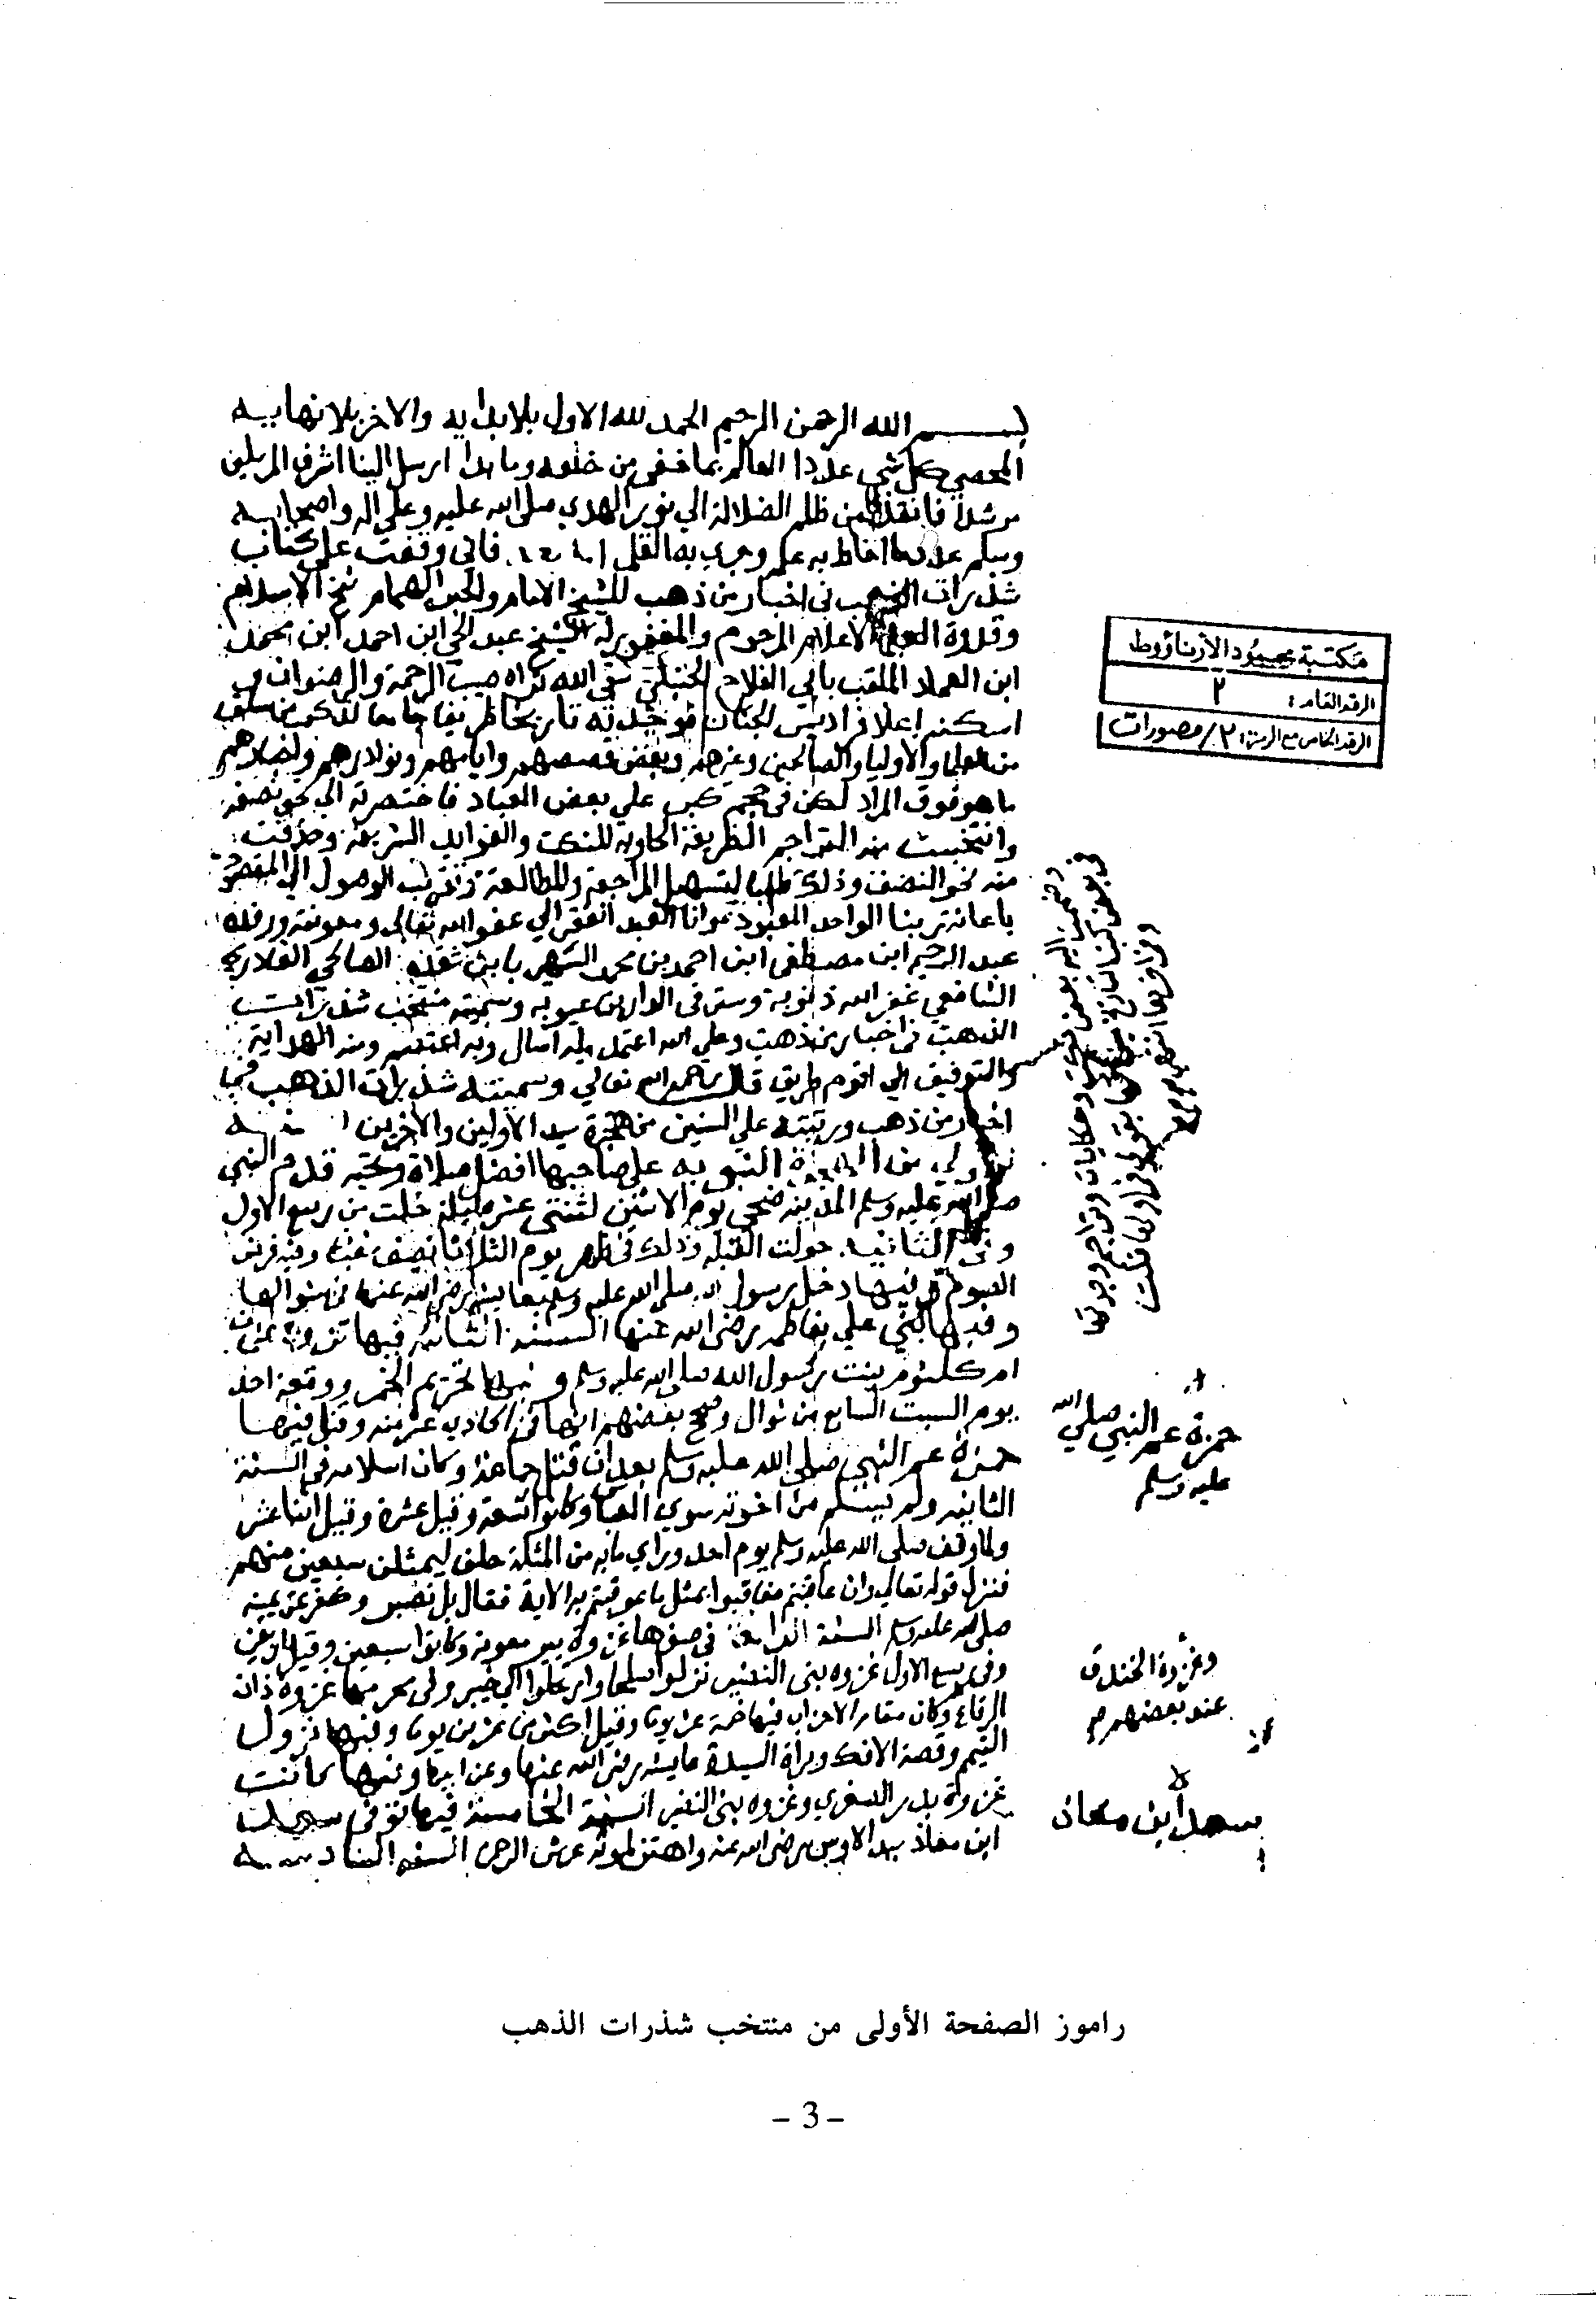 بسم الله الرحمن الرحيم الحمد لله الاول بلا بدايه والاخر بلا نهايه
المحصي كل شي عددا العالم بما خفي من خلقه وما بدا ارسل الينا اشرف المرسلين
مرشدا فانقذنا من ظلم الضلالة الي نور الهدي صلى الله عليه وعلى اله واصحابه
وسلم عدد ما احاط به علم وجري به القلم اما بعد فاني وقفت على كتاب
شذرات الذهب في اخبار من ذهب للشيخ الامام والحبر الهمام شيخ الاسلام
وقدوة العلما الاعلام المرحوم والمغفور له الشيخ عبد الحي ابن احمد ابن محمد
ابن العماد الملقب بابي الفلاح الحنبلي سقي الله ثراه صيب الرحمة والرضوان و
اسكنه اعلا فراديس الجنان فوجدته تاريخا ظريفا جامعا لذكر من سلف
من العلما والاوليا والصالحين وغيرهم وبعض قصصهم وايامهم
ما هو فوق المراد لكن في حجم كبير علي بعض العباد فاختصرته الي نحو نصفه
وانتخبت منه التراجم الظريفة الحاوية للنكت والفوايد الشريفة وحذفت
منه نحو النصف وذلك طلبا لتسهيل المراجعة وللمطالعة وتقريب الوصول الي المقصود
باعانة ربنا الواحد المعبود وانا العبد افقر الي عفو الله تعالى ومعونته ورفده
عبد الرحيم ابن مصطفى ابن احمد بن محمد الشهير بابن شقده الصالحي
الشافعي غفر الله ذنوبه وستر في الدارين عيوبه وسميته منتخب شذرات
الذهب في اخبار من ذهب وعلي الله اعتمد وبه اعتصم ومنه الهداية
والتوفيق الي اقوم طريق قال رحمه الله تعالي وسميته شذرات الذهب في
اخبار من ذهب ورتبته علي السنين من هجرة سيد الاولين والاخرين السنه
الاولي من الهجرة النبويه على صاحبها افضل صلاة وتحيه قدم النبي
صلى الله عليه وسلم المدينه ضحي يوم الاثنين لثنتي عشر ليلة خلت من ربيع الاول
وفي الثانيه حولت القبله وذلك في ظهر يوم الثلاثا نصف شعبان وفيه فرض
الصوم وفيها دخل رسول الله صلى الله عليه وسلم بعايشه رضي الله عنها في شوالها
وفيها بني علي بفاطمه رضي الله عنها السنة الثالثه فيها تزوج عثمان
ام كلثوم بنت رسول الله صلى الله عليه وسلم وفيها تحريم الخمر ووقعة احد
يوم السبت السابع من شوال وصحح بعضهم انها في الحادي عشر منه وقتل فيها
حمزة عم النبي صلى الله عليه وسلم بعد ان قتل جماعة وكان اسلامه في السنة
الثانيه ولم يسلم من اخوته سوي العباس وكانوا تسعة وقيل عشرة وقيل اثنا عشر
ولما وقف صلى الله عليه وسلم يوم احد وراي ما به من المثلة حلف ليمثلن سبعين منهم
فنزل قوله تعالي وان عاقبتم فعاقبوا بمثل ما عوقبتم به الاية فقال بل نصبر وكفر عن يمينه
صلى الله عليه وسلم السنة الرابعة في صفرها غزوة بير معونة وكانوا سبعين وقيل اربعين
وفي ربيع الاول غزوه بني النضير نزلوا صلحا وارتحلوا الي خيبر وفي محرمها غزوة ذات
الرقاع وكان مقام الاحزاب فيها خمسة عشر يوما وقيل اكثر من عشرين يوما وفيها نزول
التيمم وقصة الافك وبراة السيدة عايشه رضي الله عنها وعن ابيها وفيها كانت
غزوة بدر الصغري وغزوه بني النضير السنة الخامسة فيها توفي سعد
ابن معاذ سيد الاوس رضي الله عنه واهتز لموته عرش الرحمن السنه السادسه
مكتبة محمود الأرناؤوط
الرقم العام: ٢
الرقم الخاص مع الرمز: ٢/مصورات
حمزة عم النبي صلى الله
عليه وسلم
وغزوة الخندق
عند بعضهم
سعد ابن معاذ
راموز الصفحة الأولى من منتخب شذرات الذهب
- 3 -